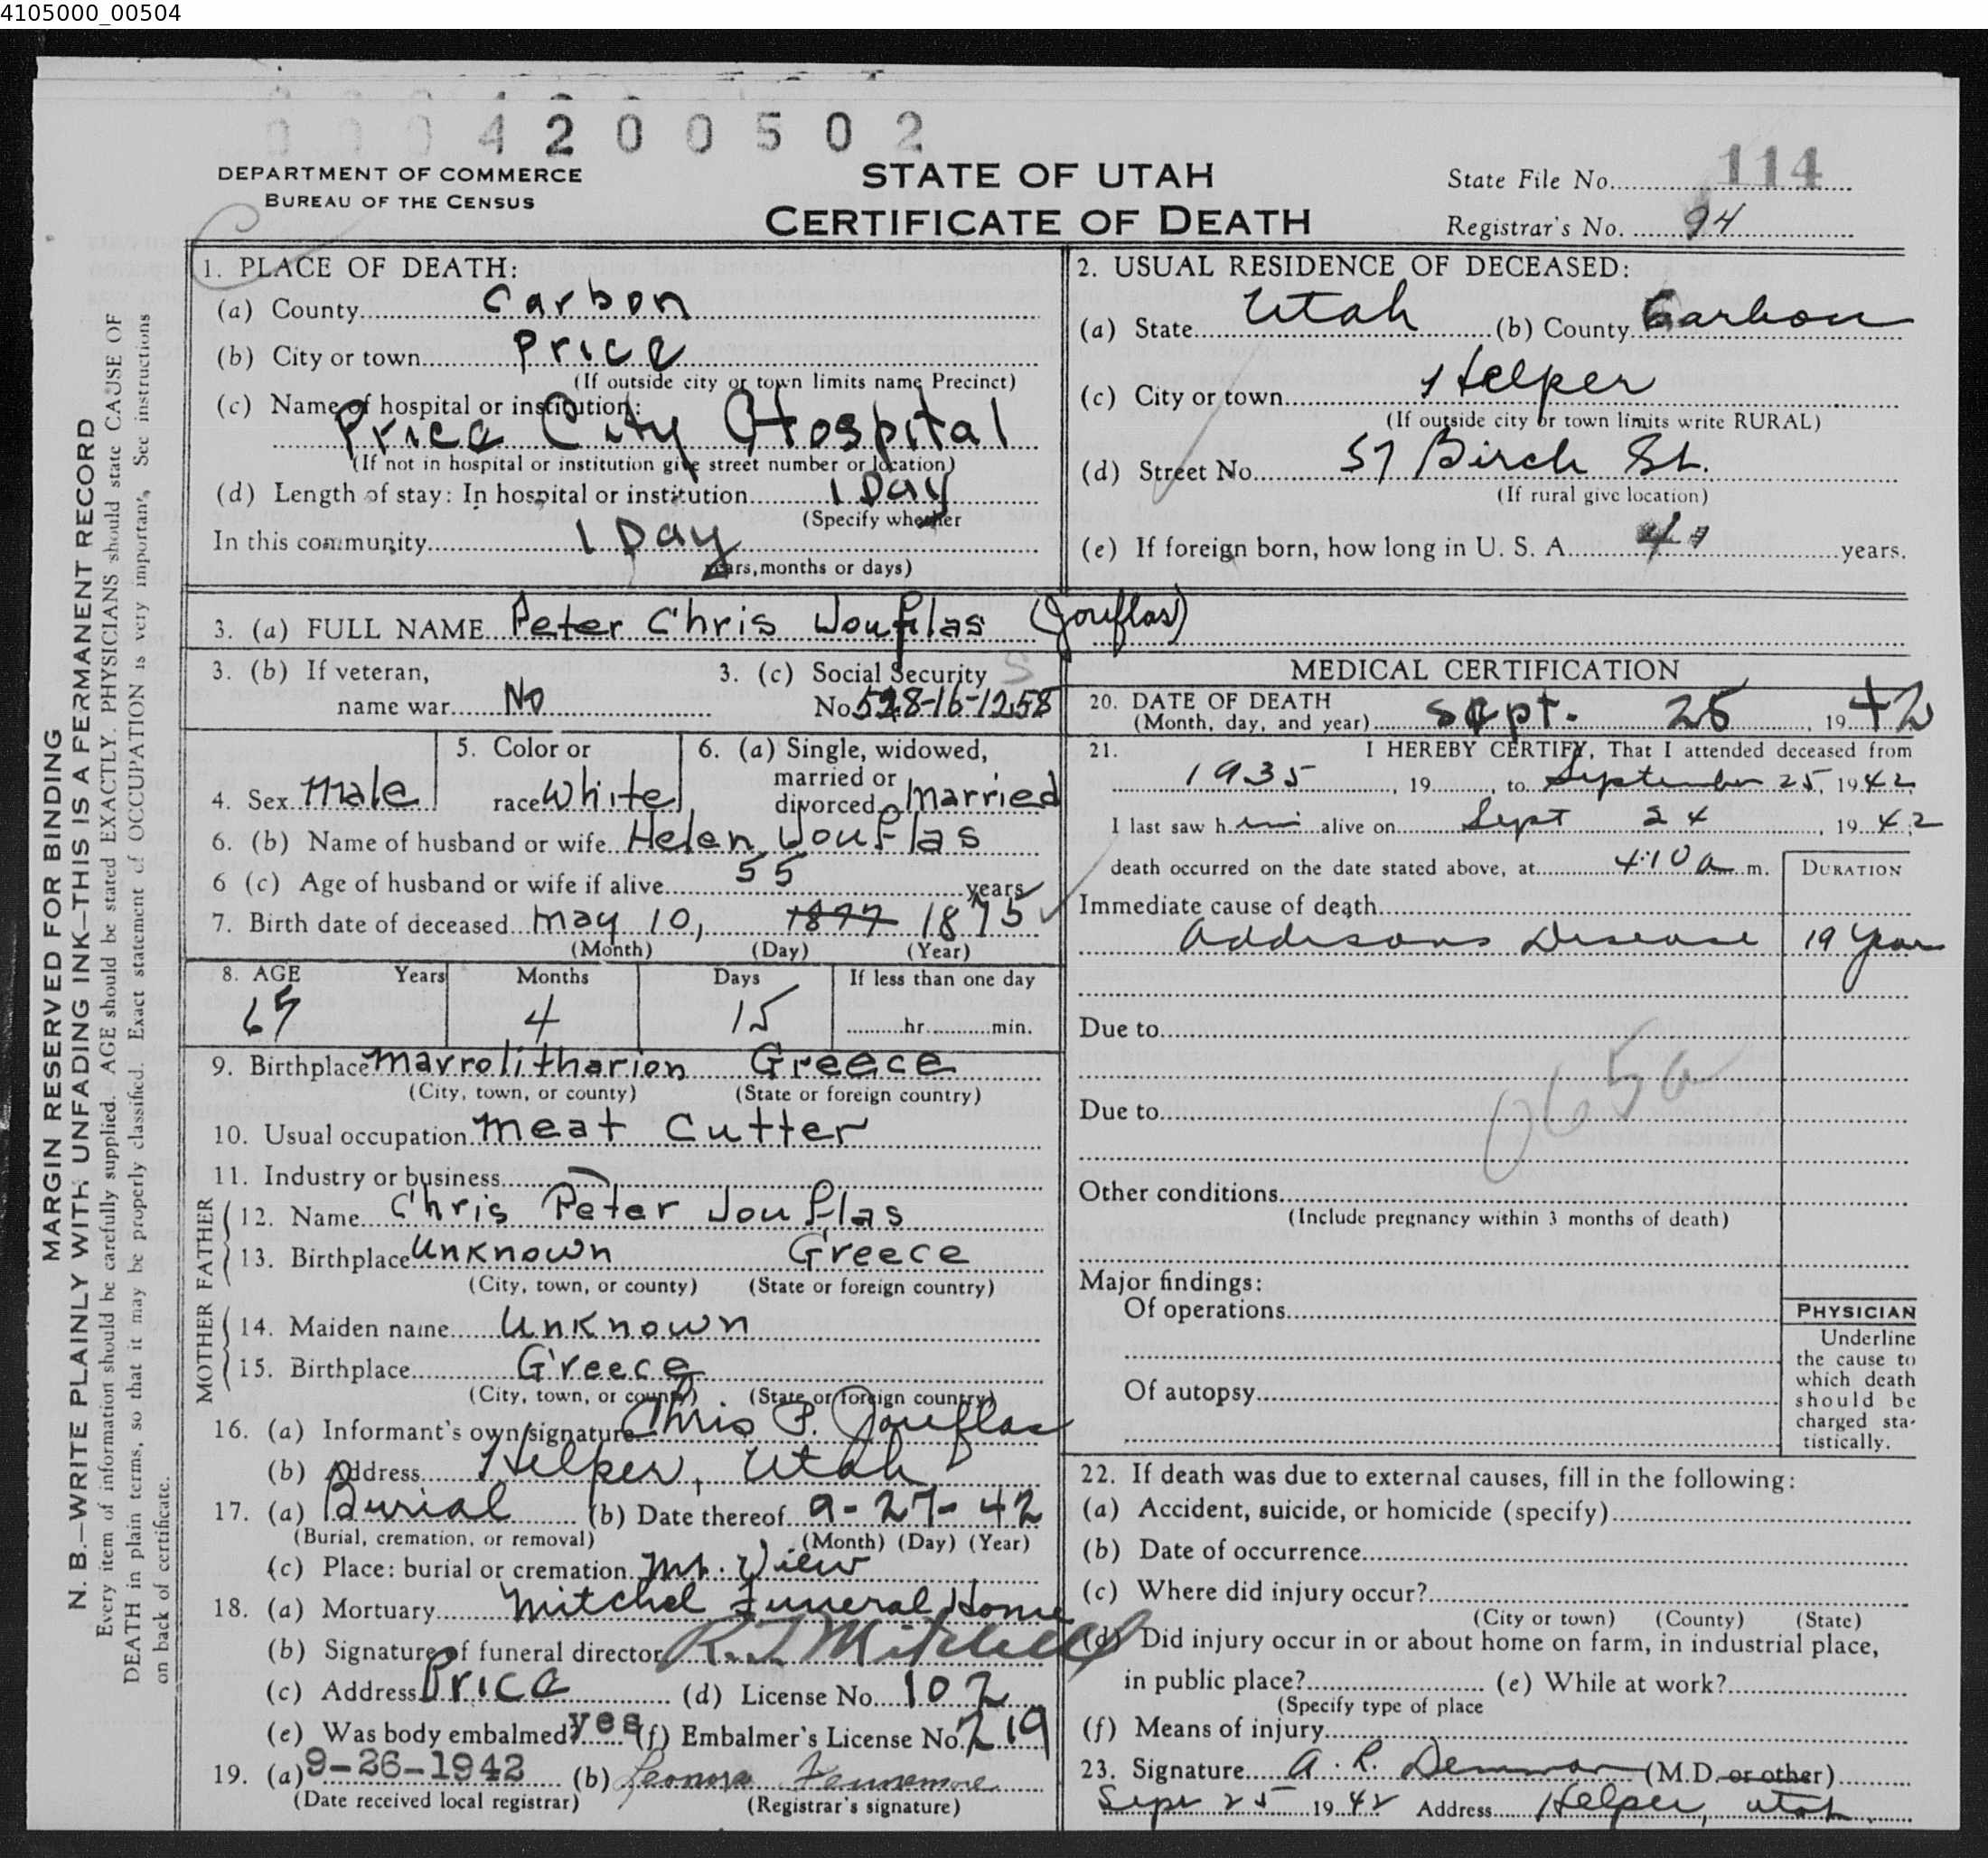 4105000_00504
0004200502
DEPARTMENT OF COMMERCE
BUREAU OF THE CENSUS
STATE OF UTAH
CERTIFICATE OF DEATH
State File No. 114
Registrar's No. 94
MARGIN RESERVED FOR BINDING
N. B.—WRITE PLAINLY WITH UNFADING INK—THIS IS A PERMANENT RECORD
Every item of information should be carefully supplied. AGE should be stated EXACTLY. PHYSICIANS should state CAUSE OF
DEATH in plain terms, so that it may be properly classified. Exact statement of OCCUPATION is very important. See instructions
on back of certificate.
1. PLACE OF DEATH:
(a) County Carbon
(b) City or town Price
(If outside city or town limits name Precinct)
(c) Name of hospital or institution:
Price City Hospital
(If not in hospital or institution give street number or location)
(d) Length of stay: In hospital or institution 1 Day
(Specify whether
In this community 1 Day
years, months or days)
2. USUAL RESIDENCE OF DECEASED:
(a) State Utah (b) County Carbon
(c) City or town Helper
(If outside city or town limits write RURAL)
(d) Street No. 57 Birch St.
(If rural give location)
(e) If foreign born, how long in U. S. A. years.
3. (a) FULL NAME Peter Chris Jouflas (Jouflas)
3. (b) If veteran,
name war No
3. (c) Social Security
No. 528-16-1258
4. Sex Male
5. Color or
race White
6. (a) Single, widowed,
married or
divorced Married
6. (b) Name of husband or wife Helen Jouflas
6 (c) Age of husband or wife if alive 55 years
7. Birth date of deceased May 10, 1877 1875
(Month) (Day) (Year)
8. AGE Years Months Days If less than one day
67 4 15 hr. min.
9. Birthplace Mavrolitharion Greece
(City, town, or county) (State or foreign country)
10. Usual occupation Meat Cutter
11. Industry or business
FATHER
12. Name Chris Peter Jouflas
13. Birthplace Unknown Greece
(City, town, or county) (State or foreign country)
MOTHER
14. Maiden name Unknown
15. Birthplace Greece
(City, town, or county) (State or foreign country)
16. (a) Informant's own signature Chris P. Jouflas
(b) Address Helper, Utah
17. (a) Burial (b) Date thereof 9-27-42
(Burial, cremation, or removal) (Month) (Day) (Year)
(c) Place: burial or cremation Mt. View
18. (a) Mortuary Mitchel Funeral Home
(b) Signature of funeral director Mitchell
(c) Address Price (d) License No. 102
(e) Was body embalmed? yes (f) Embalmer's License No. 219
19. (a) 9-26-1942 (b) Leonora Fennemore
(Date received local registrar) (Registrar's signature)
MEDICAL CERTIFICATION
20. DATE OF DEATH
(Month, day, and year) Sept. 25, 1942
21. I HEREBY CERTIFY, That I attended deceased from
1935, 19, to September 25, 1942
I last saw him alive on Sept 24, 1942
death occurred on the date stated above, at 4:10 a m.
DURATION
Immediate cause of death
Addisons Disease 19 years
Due to
0650
Due to
Other conditions
(Include pregnancy within 3 months of death)
Major findings:
Of operations
Of autopsy
PHYSICIAN
Underline
the cause to
which death
should be
charged sta-
tistically.
22. If death was due to external causes, fill in the following:
(a) Accident, suicide, or homicide (specify)
(b) Date of occurrence
(c) Where did injury occur?
(City or town) (County) (State)
(d) Did injury occur in or about home on farm, in industrial place,
in public place? (e) While at work?
(Specify type of place
(f) Means of injury
23. Signature A. R. Demman (M.D. or other)
Sept 25 1942 Address Helper, Utah